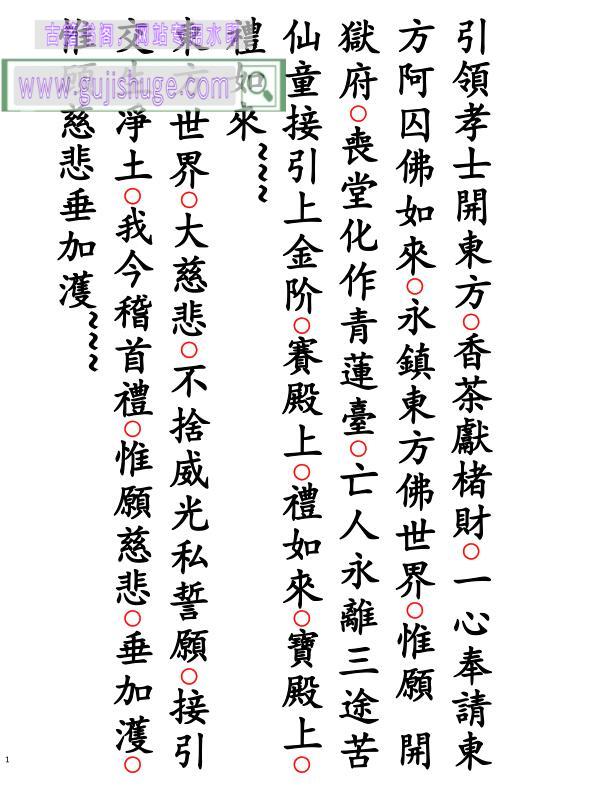 引領孝士開東方○香茶獻楮財○一心奉請東
方阿囚佛如來○永鎮東方佛世界○惟願 開
獄府○喪堂化作青蓮臺○亡人永離三途苦
仙童接引上金阶○賽殿上○禮如來○寶殿上○
禮如來~~~
世界○大慈悲○不捨威光私誓願○接引
淨土○我今稽首禮○惟願慈悲○垂加濩○
惟願慈悲垂加濩~~~
www.gujishuge.com
1